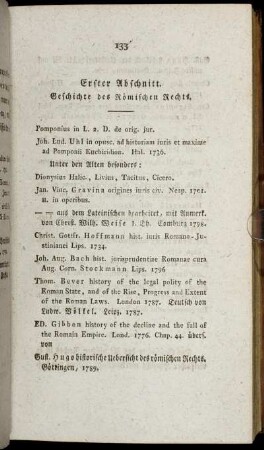 133
Erster Abschnitt.
Geschichte des Römischen Rechts.
Pomponius in L. 2. D. de orig. jur.
Joh. End. Uhl in opusc. ad historiam iuris et maxime
ad Pomponii Enchiridion. Hal. 1736.
Unter den Alten besonders:
Dionysius Halic., Livius, Tacitus, Cicero.
Jan. Vinc. Gravina origines iuris civ. Neap. 1701.
u. in operibus.
— — aus dem Lateinischen bearbeitet, mit Anmerk.
von Christ. Wilh. Weise
Christ. Gottfr. Hoffmann hist. iuris Romano-Ju-
stinianei Lips. 1734.
Joh. Aug. Bach hist. jurisprudentiae Romanae cura
Aug. Corn. Stockmann Lips. 1796
Thom. Bever history of the legal polity of the
Roman State, and of the Rise, Progress and Extent
of the Roman Laws. London 1787. Deutsch von
Ludw. Völkel. Leipz. 1787.
ED. Gibbon history of the decline and the fall of
the Romain Empire. Lond. 1776. Chap. 44. übers.
von
Gust. Hugo historische Uebersicht des römischen Rechts.
Göttingen, 1789.